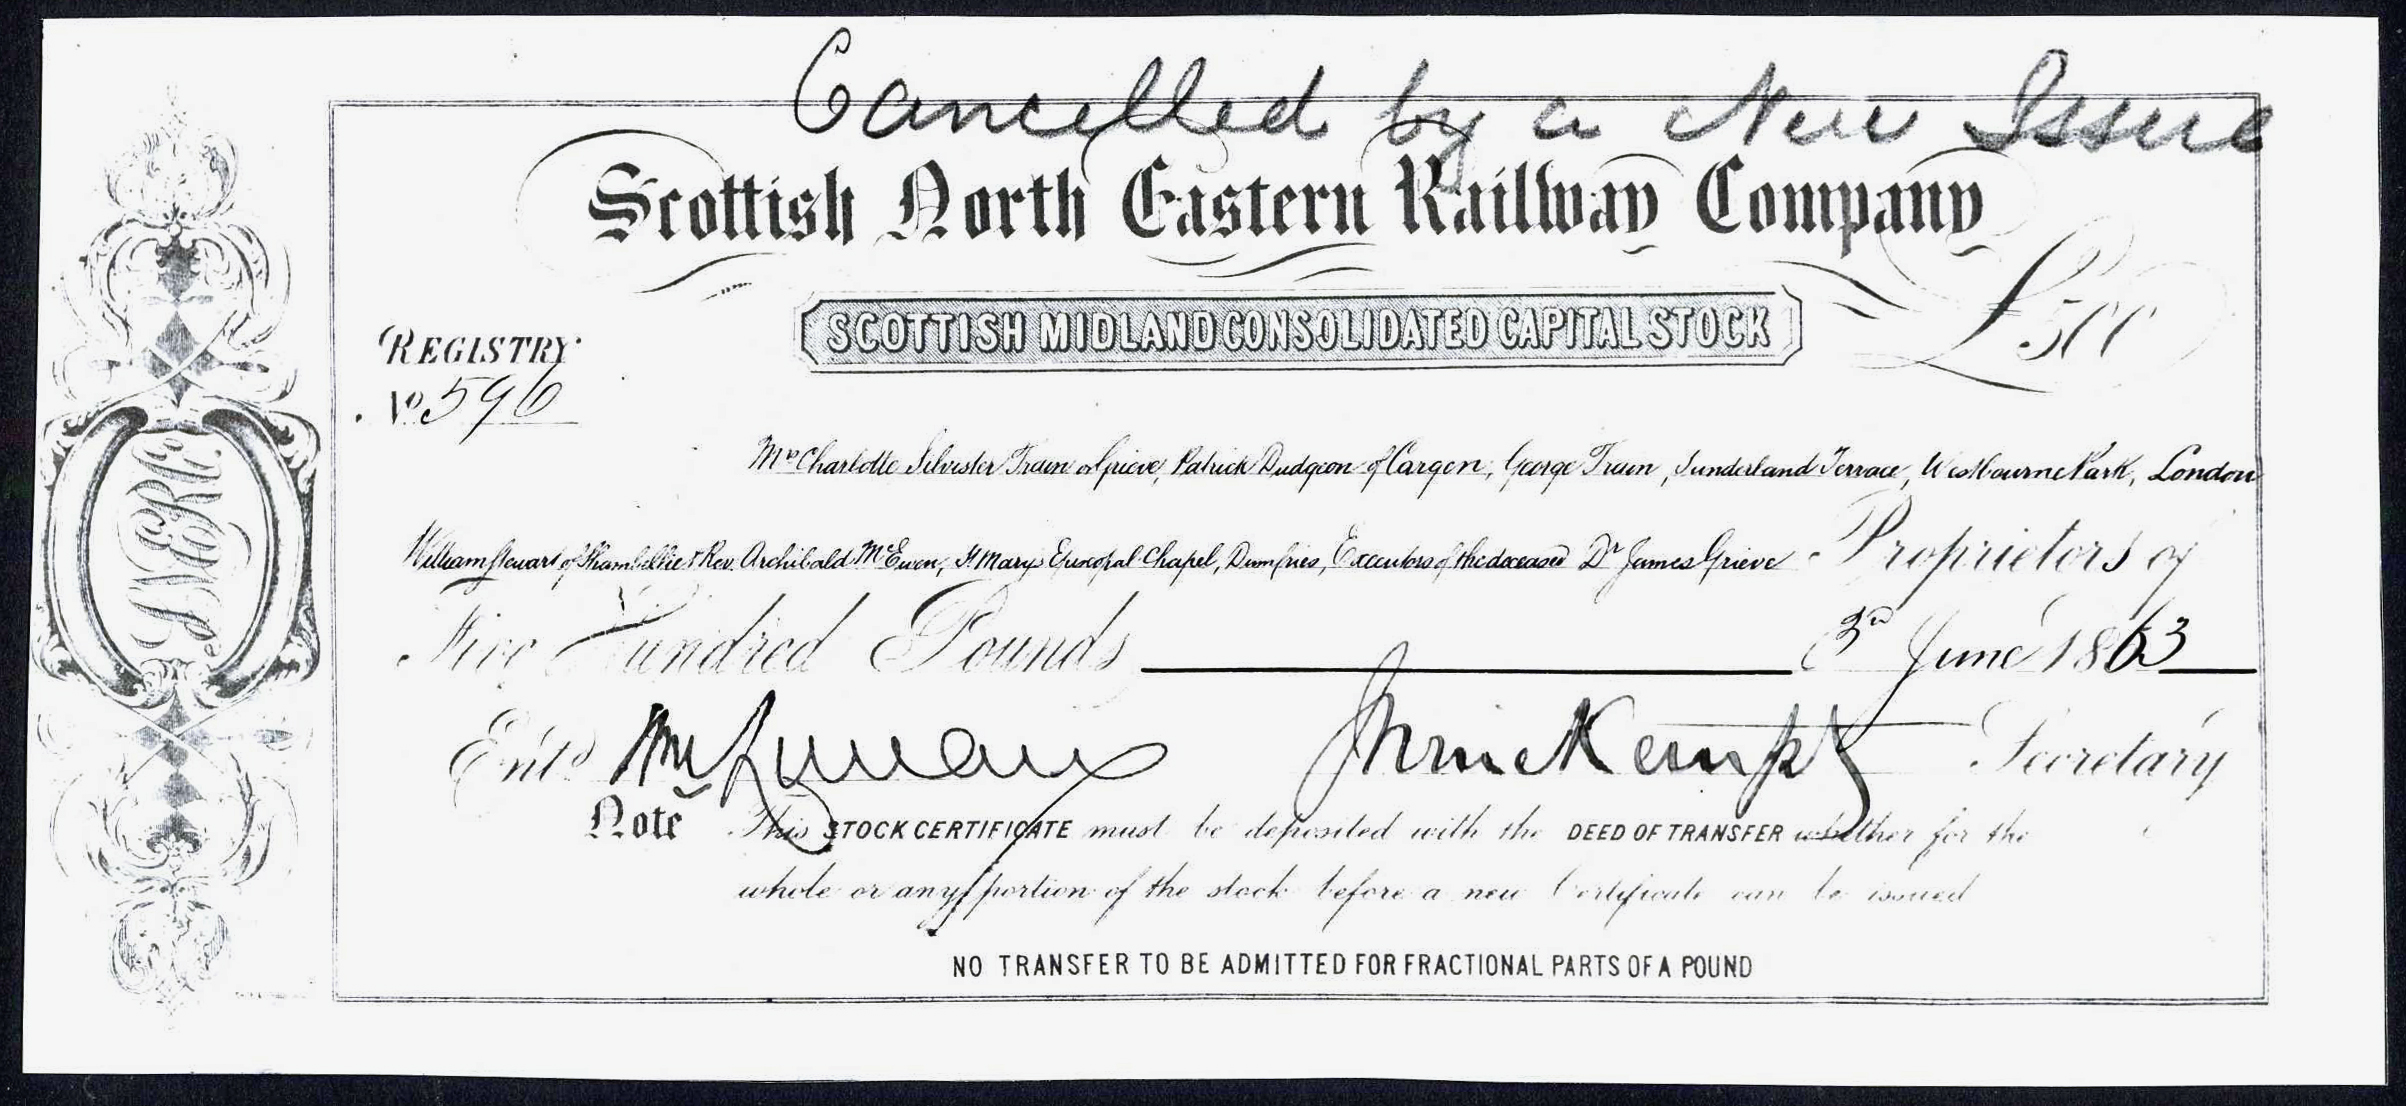 Cancelled by a New Issue
Scottish North Eastern Railway Company
SCOTTISH MIDLAND CONSOLIDATED CAPITAL STOCK
£500
REGISTRY
No 596
Mrs Charlotte Silvester Train or Grieve, Patrick Dudgeon of Cargen, George Train, Sunderland Terrace, Westbourne Park, London
William Stewart of Shambellie & Rev. Archibald McEwen, St Mary's Episcopal Chapel, Dumfries, Executors of the deceased Dr James Grieve Proprietors of
Five Hundred Pounds 3rd June 1863
Entd Secretary
Note This STOCK CERTIFICATE must be deposited with the DEED OF TRANSFER whether for the
whole or any portion of the stock before a new Certificate can be issued
NO TRANSFER TO BE ADMITTED FOR FRACTIONAL PARTS OF A POUND